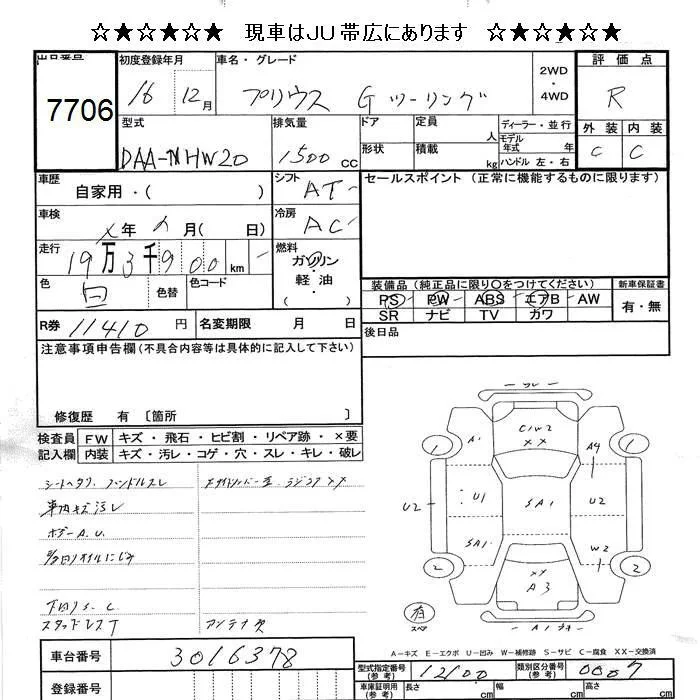 ☆★☆★☆ 現車はJU帯広にあります ☆★☆★☆
出品番号 初度登録年月 車名・グレード 2WD ・ 4WD 評価点
7706 16 12月 プリウス Gツーリング R
型式 排気量 ドア 定員 人 ディーラー・並行 外装 内装
DAA-NHW20 1500 CC 形状 積載 kg モデル年式 年 ハンドル 左・右 C C
車歴 自家用・( ) シフト AT セールスポイント (正常に機能するものに限ります)
車検 年 月( 日) 冷房 AC
走行 19万3千900 km 燃料 ガソリン・軽油
色 白 色替 色コード
装備品(純正品に限り○をつけてください) 新車保証書
PS PW ABS エアB AW 有・無
SR ナビ TV カワ
R券 11410円 名変期限 月 日
後日品
注意事項申告欄(不具合内容等は具体的に記入して下さい)
修復歴 有 〔箇所
検査員 FW キズ・飛石・ヒビ割・リペア跡・×要
記入欄 内装 キズ・汚レ・コゲ・穴・スレ・キレ・破レ
シートヘタリ ハンドルスレ
車内キズ汚レ
ボデーA.U.
下廻りS.C
スタッドレスT アンテナ欠
C1W2
XX
A1
A4
1
1
U2
U1
SA1
U2
SA1
W2
2
2
XX
A3
有
スペア
A1
A-キズ E-エクボ U-凹み W-補修跡 S-サビ C-腐食 XX-交換済
車台番号 3016378
型式指定番号(参考) 12100 類別区分番号(参考) 0007
登録番号
車庫証明用(参考) 長さ cm 幅 cm 高さ cm